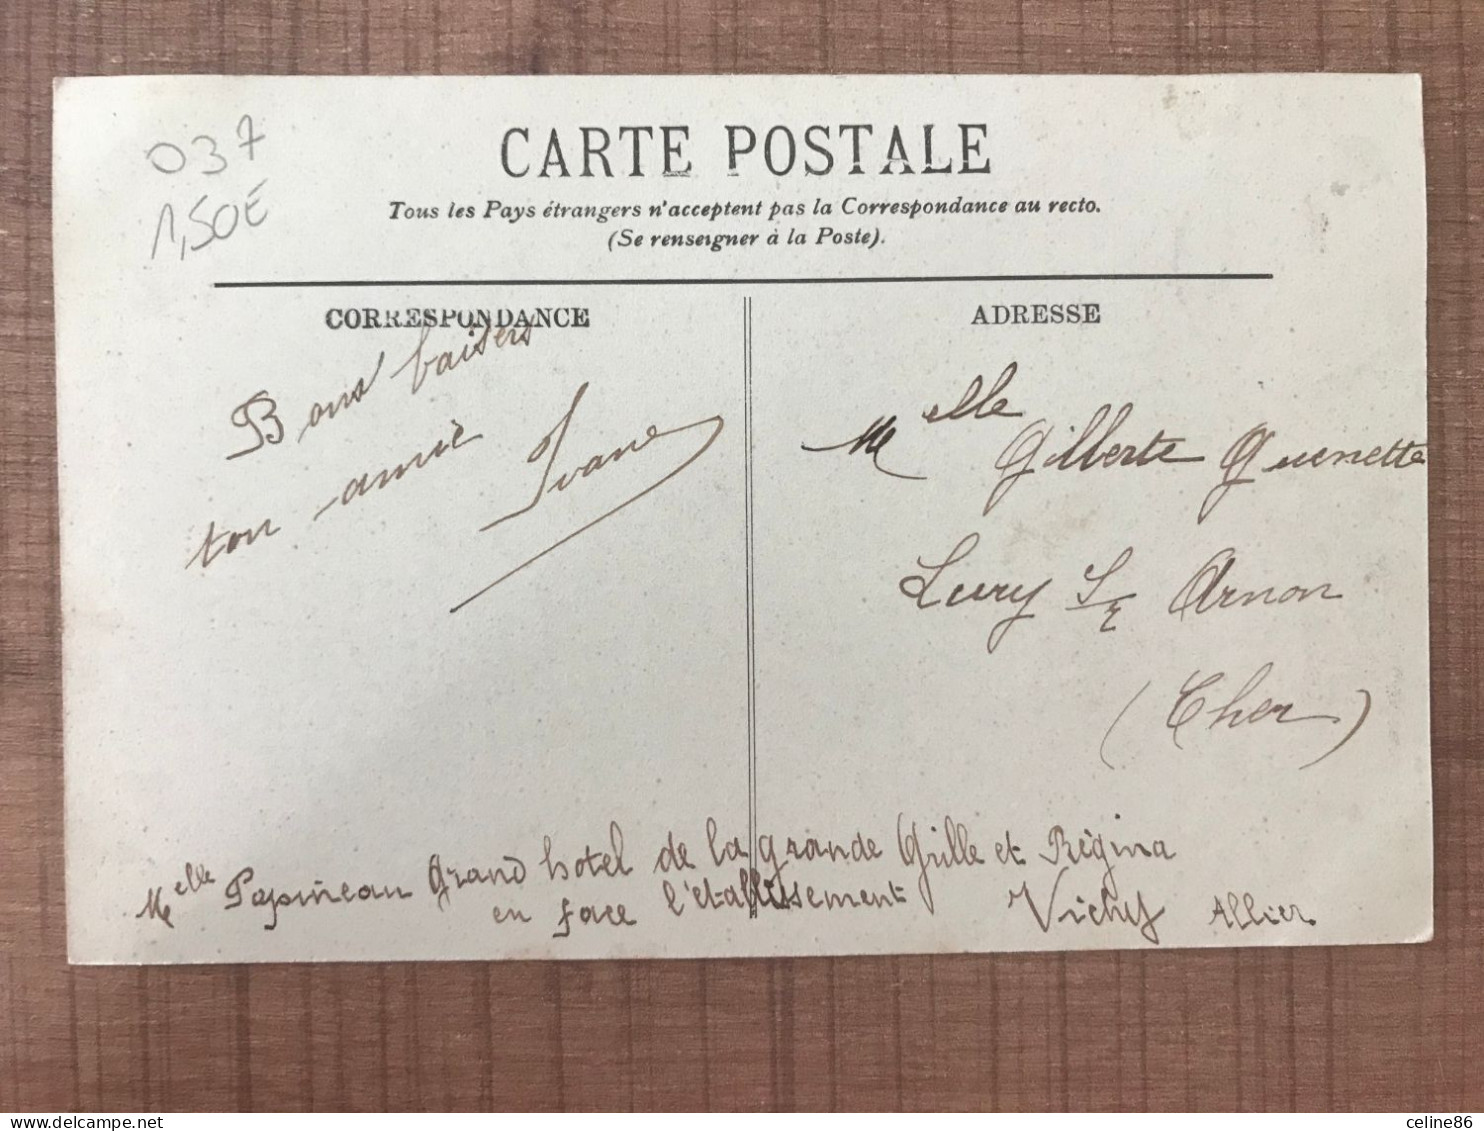 037
1,50€
CARTE POSTALE
Tous les Pays étrangers n'acceptent pas la Correspondance au recto.
(Se renseigner à la Poste).
CORRESPONDANCE
Bons baisers
ton amie
Ivane
ADRESSE
Melle
Gilberte Guenette
Lury S/ Arnon
(Cher)
Melle Papineau Grand hotel de la grande Grille et Régina
en face l'établissement Vichy Allier
celine86